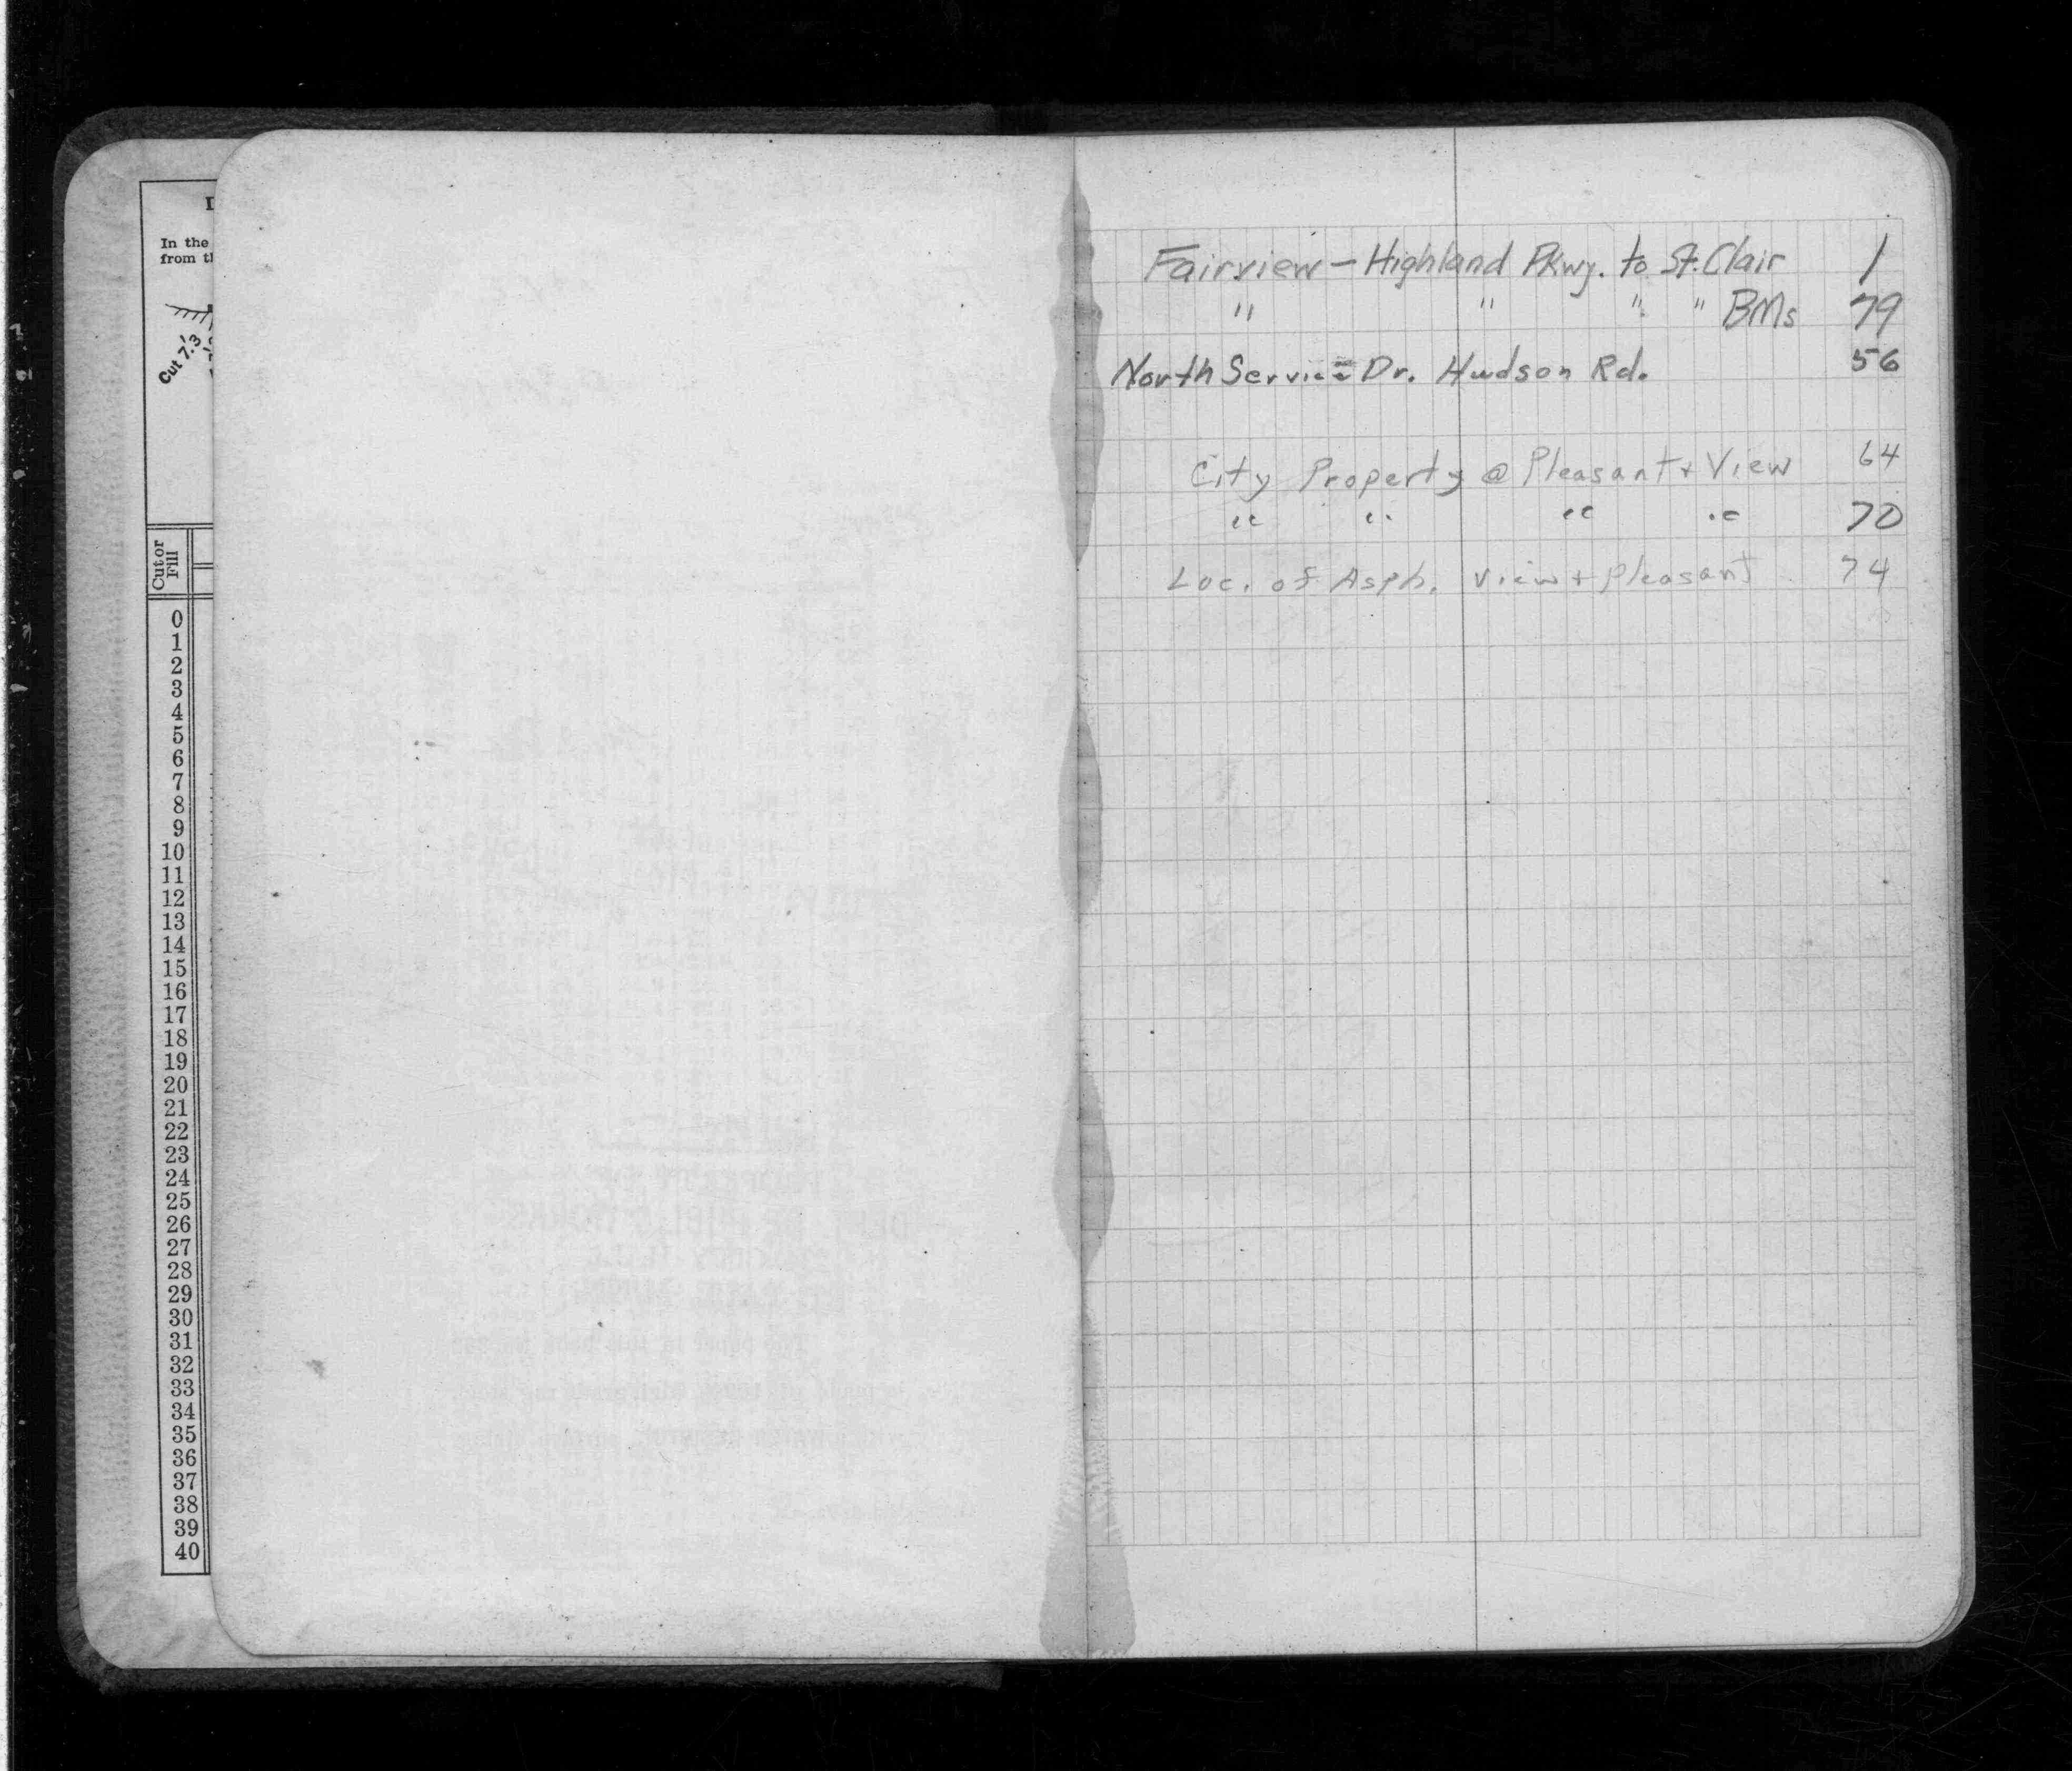 In the
from
Cut 7.3
Cut or
Fill
0
1
2
3
4
5
6
7
8
9
10
11
12
13
14
15
16
17
18
19
20
21
22
23
24
25
26
27
28
29
30
31
32
33
34
35
36
37
38
39
40
Fairview - Highland Pkwy. to St. Clair 1
" " " " BMs 79
North Service Dr. Hudson Rd. 56
City Property @ Pleasant + View 64
" " " " 70
Loc. of Asph. View + Pleasant 74